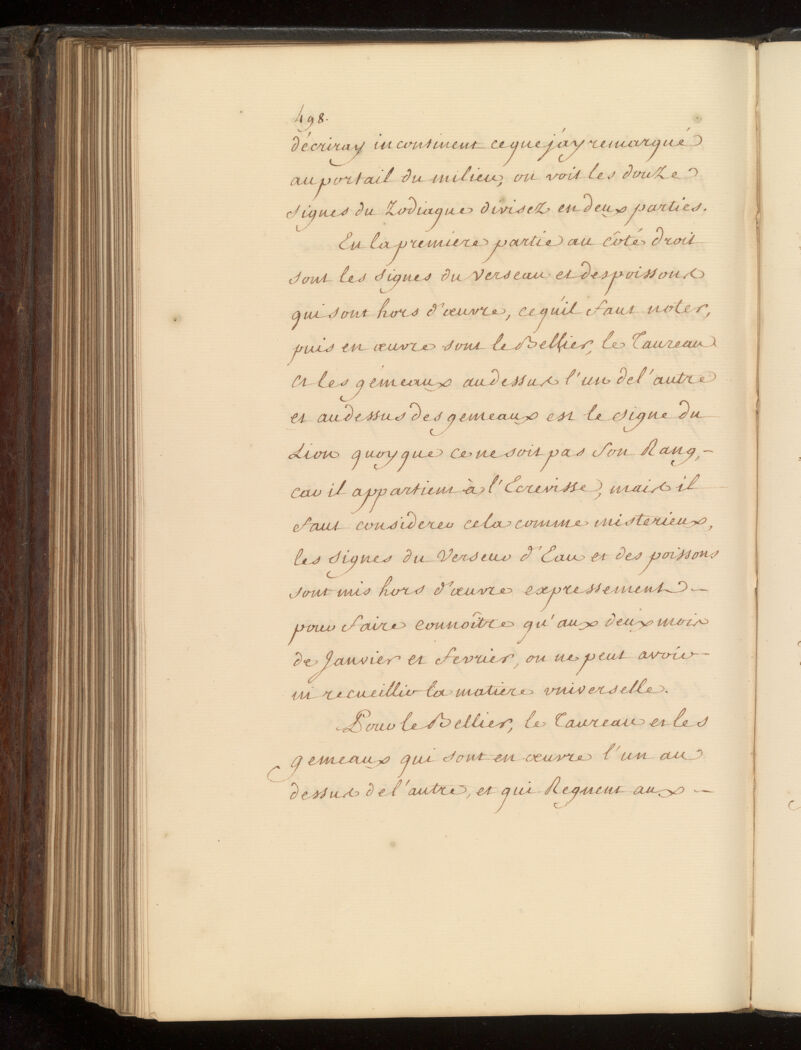 498.
décriray incontinent ce que j'ay remarqué
au portail du milieu, on voit les douze
signes du Zodiaque divisez en deux parties.
En la premiere partie au côté droit
sont les signes du Verseau et des poissons
qui sont hors d'œuvre, ce qu'il faut noter,
puis en œuvre sont le Bellier, le Taureau
et les gémeaux au dessus l'un de l'autre
et au dessus des gemeaux est le signe du
Lion quoy que ce ne soit pas son Rang, –
car il appartient à l'Ecrevisse, mais il
faut considerer cela comme misterieux,
les signes du Verseur d'Eau et des poissons
sont mis hors d'œuvre expressement –
pour faire connoître qu'aux deux mois
de Janvier et fevrier, on ne peut avoir –
ni recueillir la matière vniverselle.
Pour le Bellier, le Taureau et les
gemeaux qui sont en œuvre l'un au
dessus de l'autre, et qui Regnent aux –